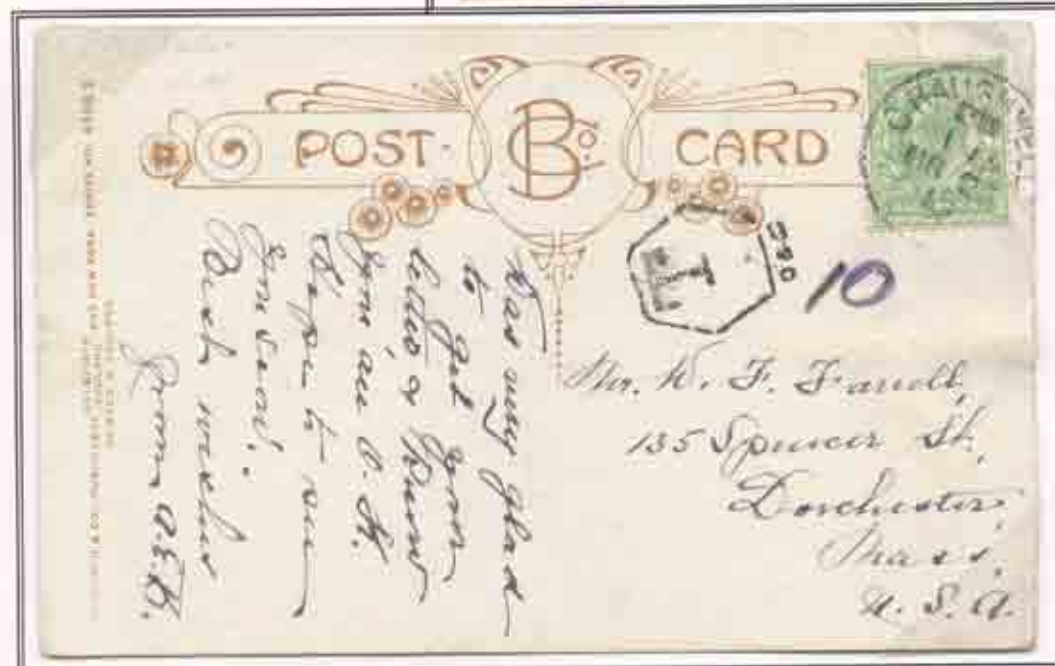 POST CARD
CB Co.
T
O&S
10
Was very glad
to get your
letter & know
you are O.K.
Hope to see
you soon.
Best wishes
from A.E.B.
Mr. W. F. Farrell,
135 Spencer St,
Dorchester,
Mass.
U.S.A.